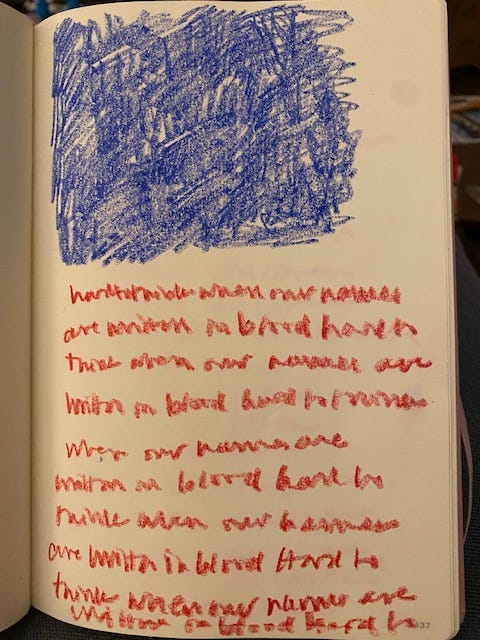 hard to think when our names
are written in blood hard to
think when our names are
written in blood hard to think
when our names are
written in blood hard to
think when our names
are written in blood Hard to
think when our names are
written in blood hard to
37